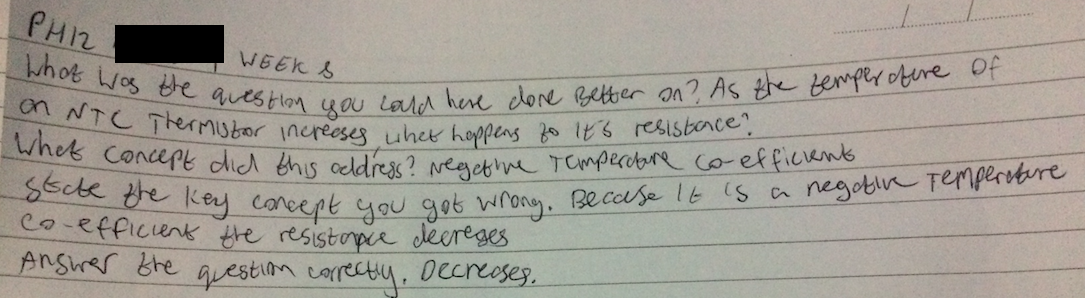 PH12 WEEK 8
What was the question you could have done better on? As the temperature of
an NTC Thermistor increases, what happens to it's resistance?
What concept did this address? Negative Temperature co-efficient
State the key concept you got wrong. Because it is a negative Temperature
co-efficient the resistance decreses
Answer the question correctly. Decreases.